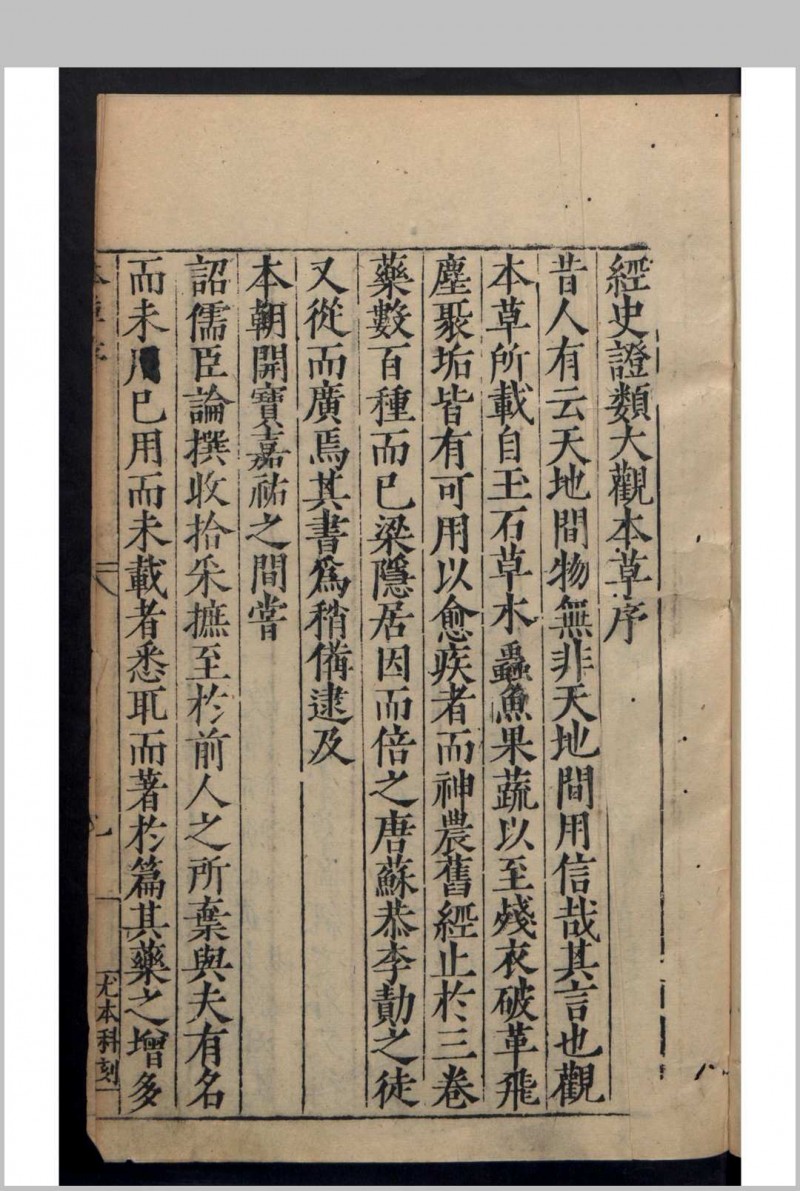 經史證類大觀本草序
昔人有云天地間物無非天地間用信哉其言也觀
本草所載自玉石草木蟲魚果蔬以至殘衣破革飛
塵聚垢皆有可用以愈疾者而神農舊經止於三卷
藥數百種而已梁隱居因而倍之唐蘇恭李勣之徒
又從而廣焉其書爲稍備逮及
本朝開寶嘉祐之間嘗
詔儒臣論撰收拾采摭至於前人之所棄與夫有名
而未用已用而未載者悉取而著於篇其藥之增多
尤本科刻